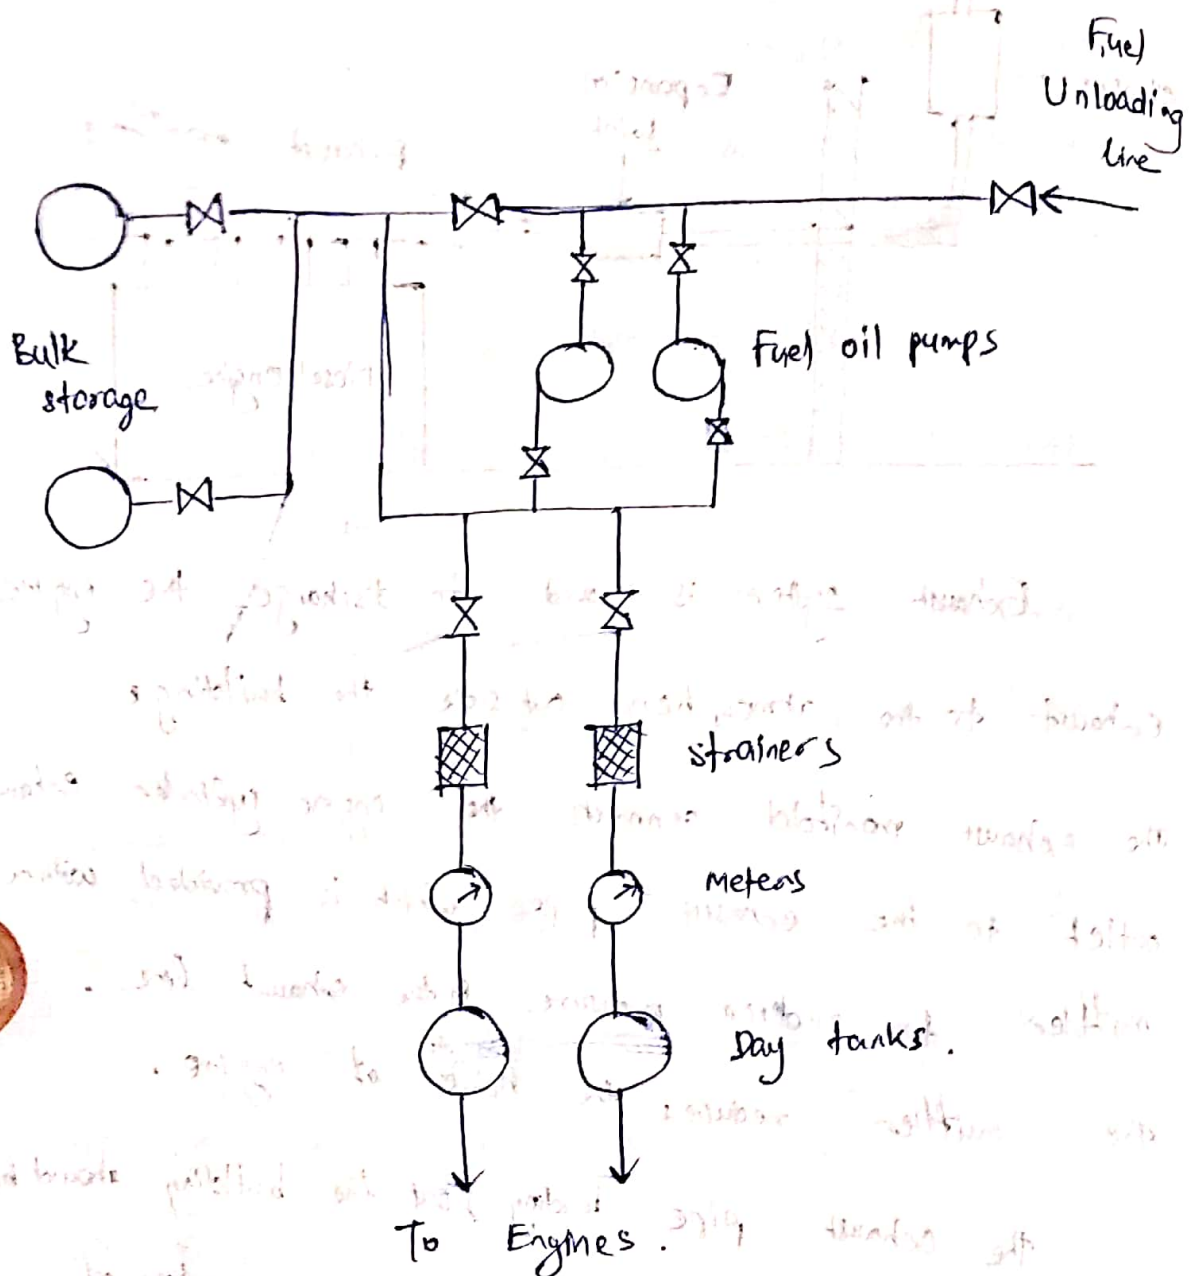 Fuel
Unloading
line
Bulk
storage
Fuel oil pumps
strainers
Meters
Day tanks.
To Engines.